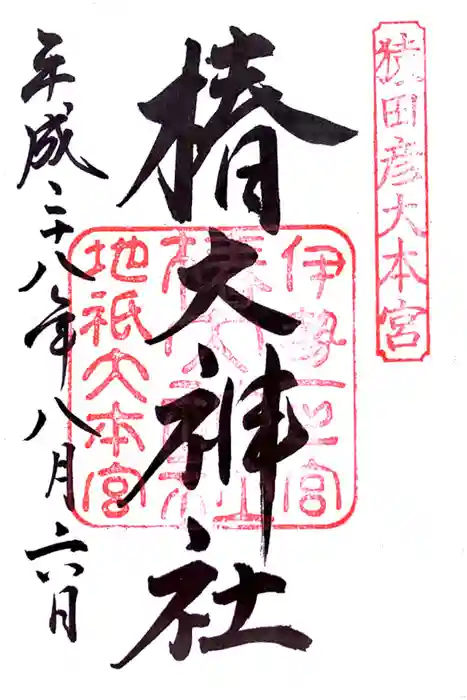 猿田彦大本宮
伊勢一之宮
椿大神社
地祇大本宮
椿大神社
平成二十八年八月六日